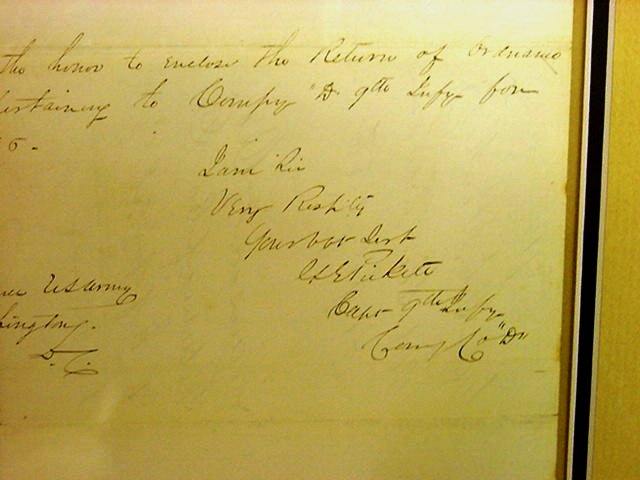 the honor to enclose the Return of Ordnance
ertaining to Compy "D" 9th Infy for
5 -
I am Sir
Very Respfly
Your obt Servt
G E Pickett
Capt 9th Infy
Comg Co "D"
U S Army
hington
D. C.